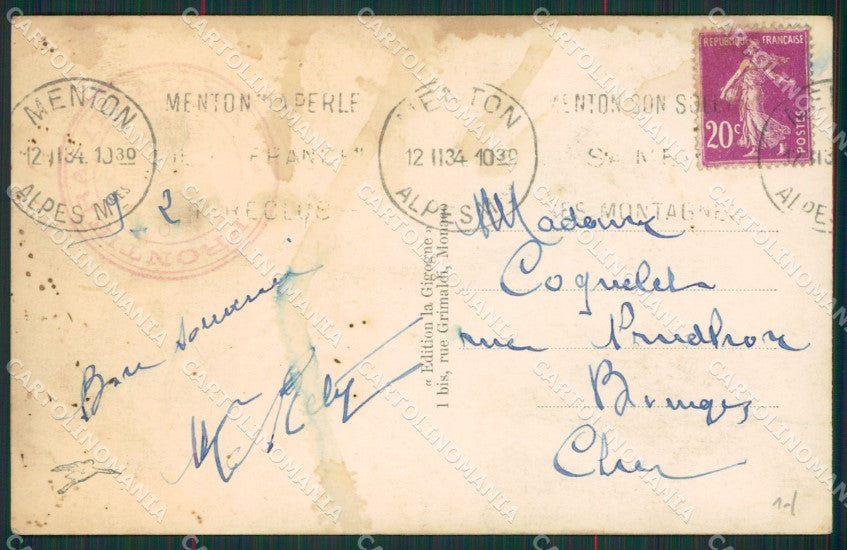 MENTON
12 II 34 10 30
ALPES Mmes
MENTON LA PERLE
FRANCE"
MENTON
12 II 34 10 30
ALPES
MENTON SON SOLEIL
SA MER
SES MONTAGNES
REPUBLIQUE FRANÇAISE
20c
POSTES
FRONTI
9 - 2
Bon souvenir
« Edition la Gigogne »
1 bis, rue Grimaldi, Monaco
Madame
Coquelet
rue Prudhon
Bourges
Cher
CARTOLINOMANIA